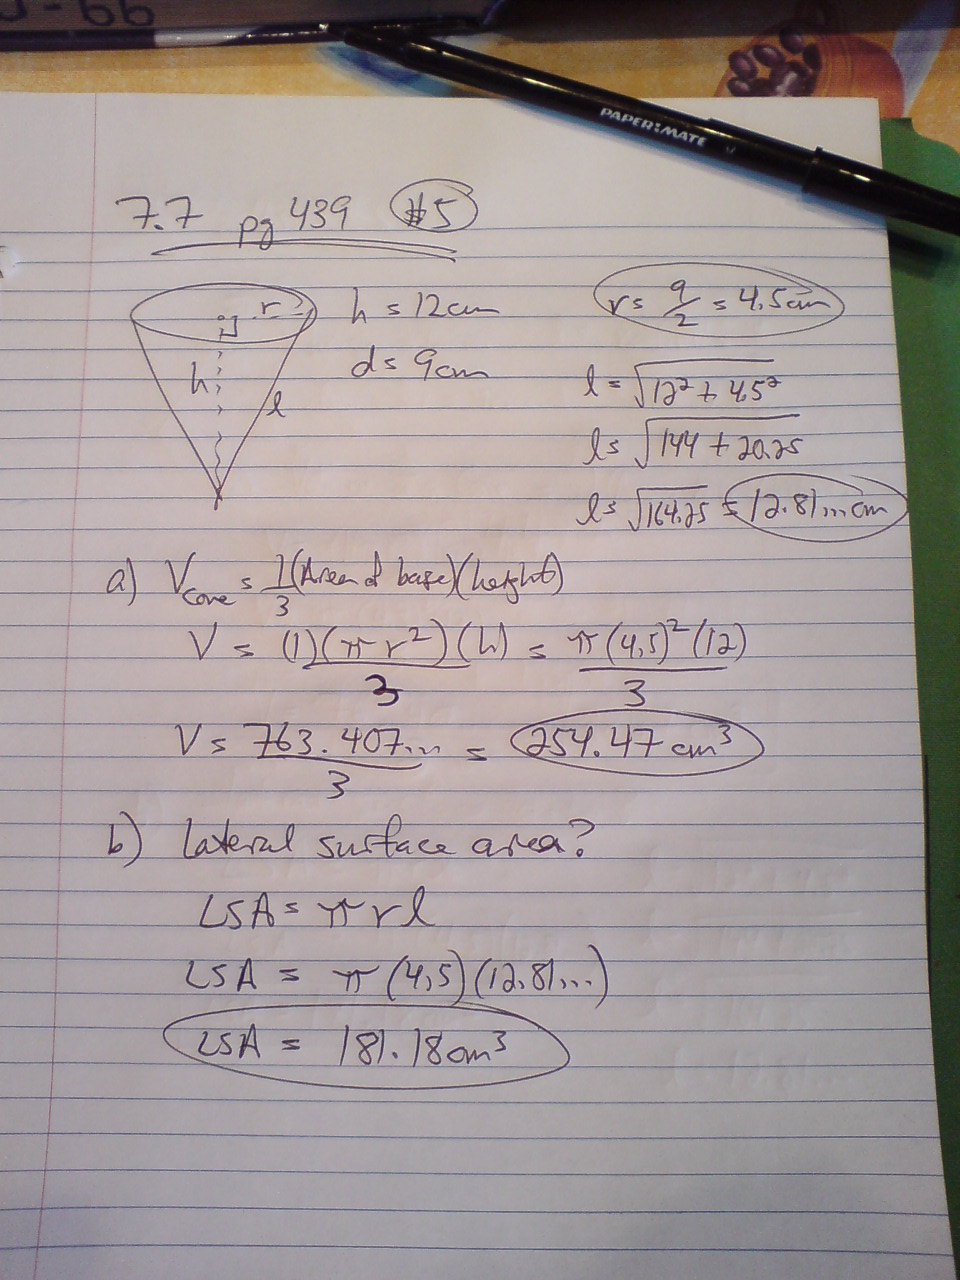 PAPER:MATE
7.7 pg 439 #5
r
h = 12cm
r = 9/2 = 4.5cm
h
d = 9cm
l
l = √12² + 4.5²
l = √144 + 20.25
l = √164.25 = 12.81...cm
a) Vcone = 1/3 (Area of base)(height)
V = (1)(πr²)(h)/3 = π(4.5)²(12)/3
V = 763.407.../3 = 254.47 cm³
b) Lateral surface area?
LSA = πrl
LSA = π(4.5)(12.81...)
LSA = 181.18cm³